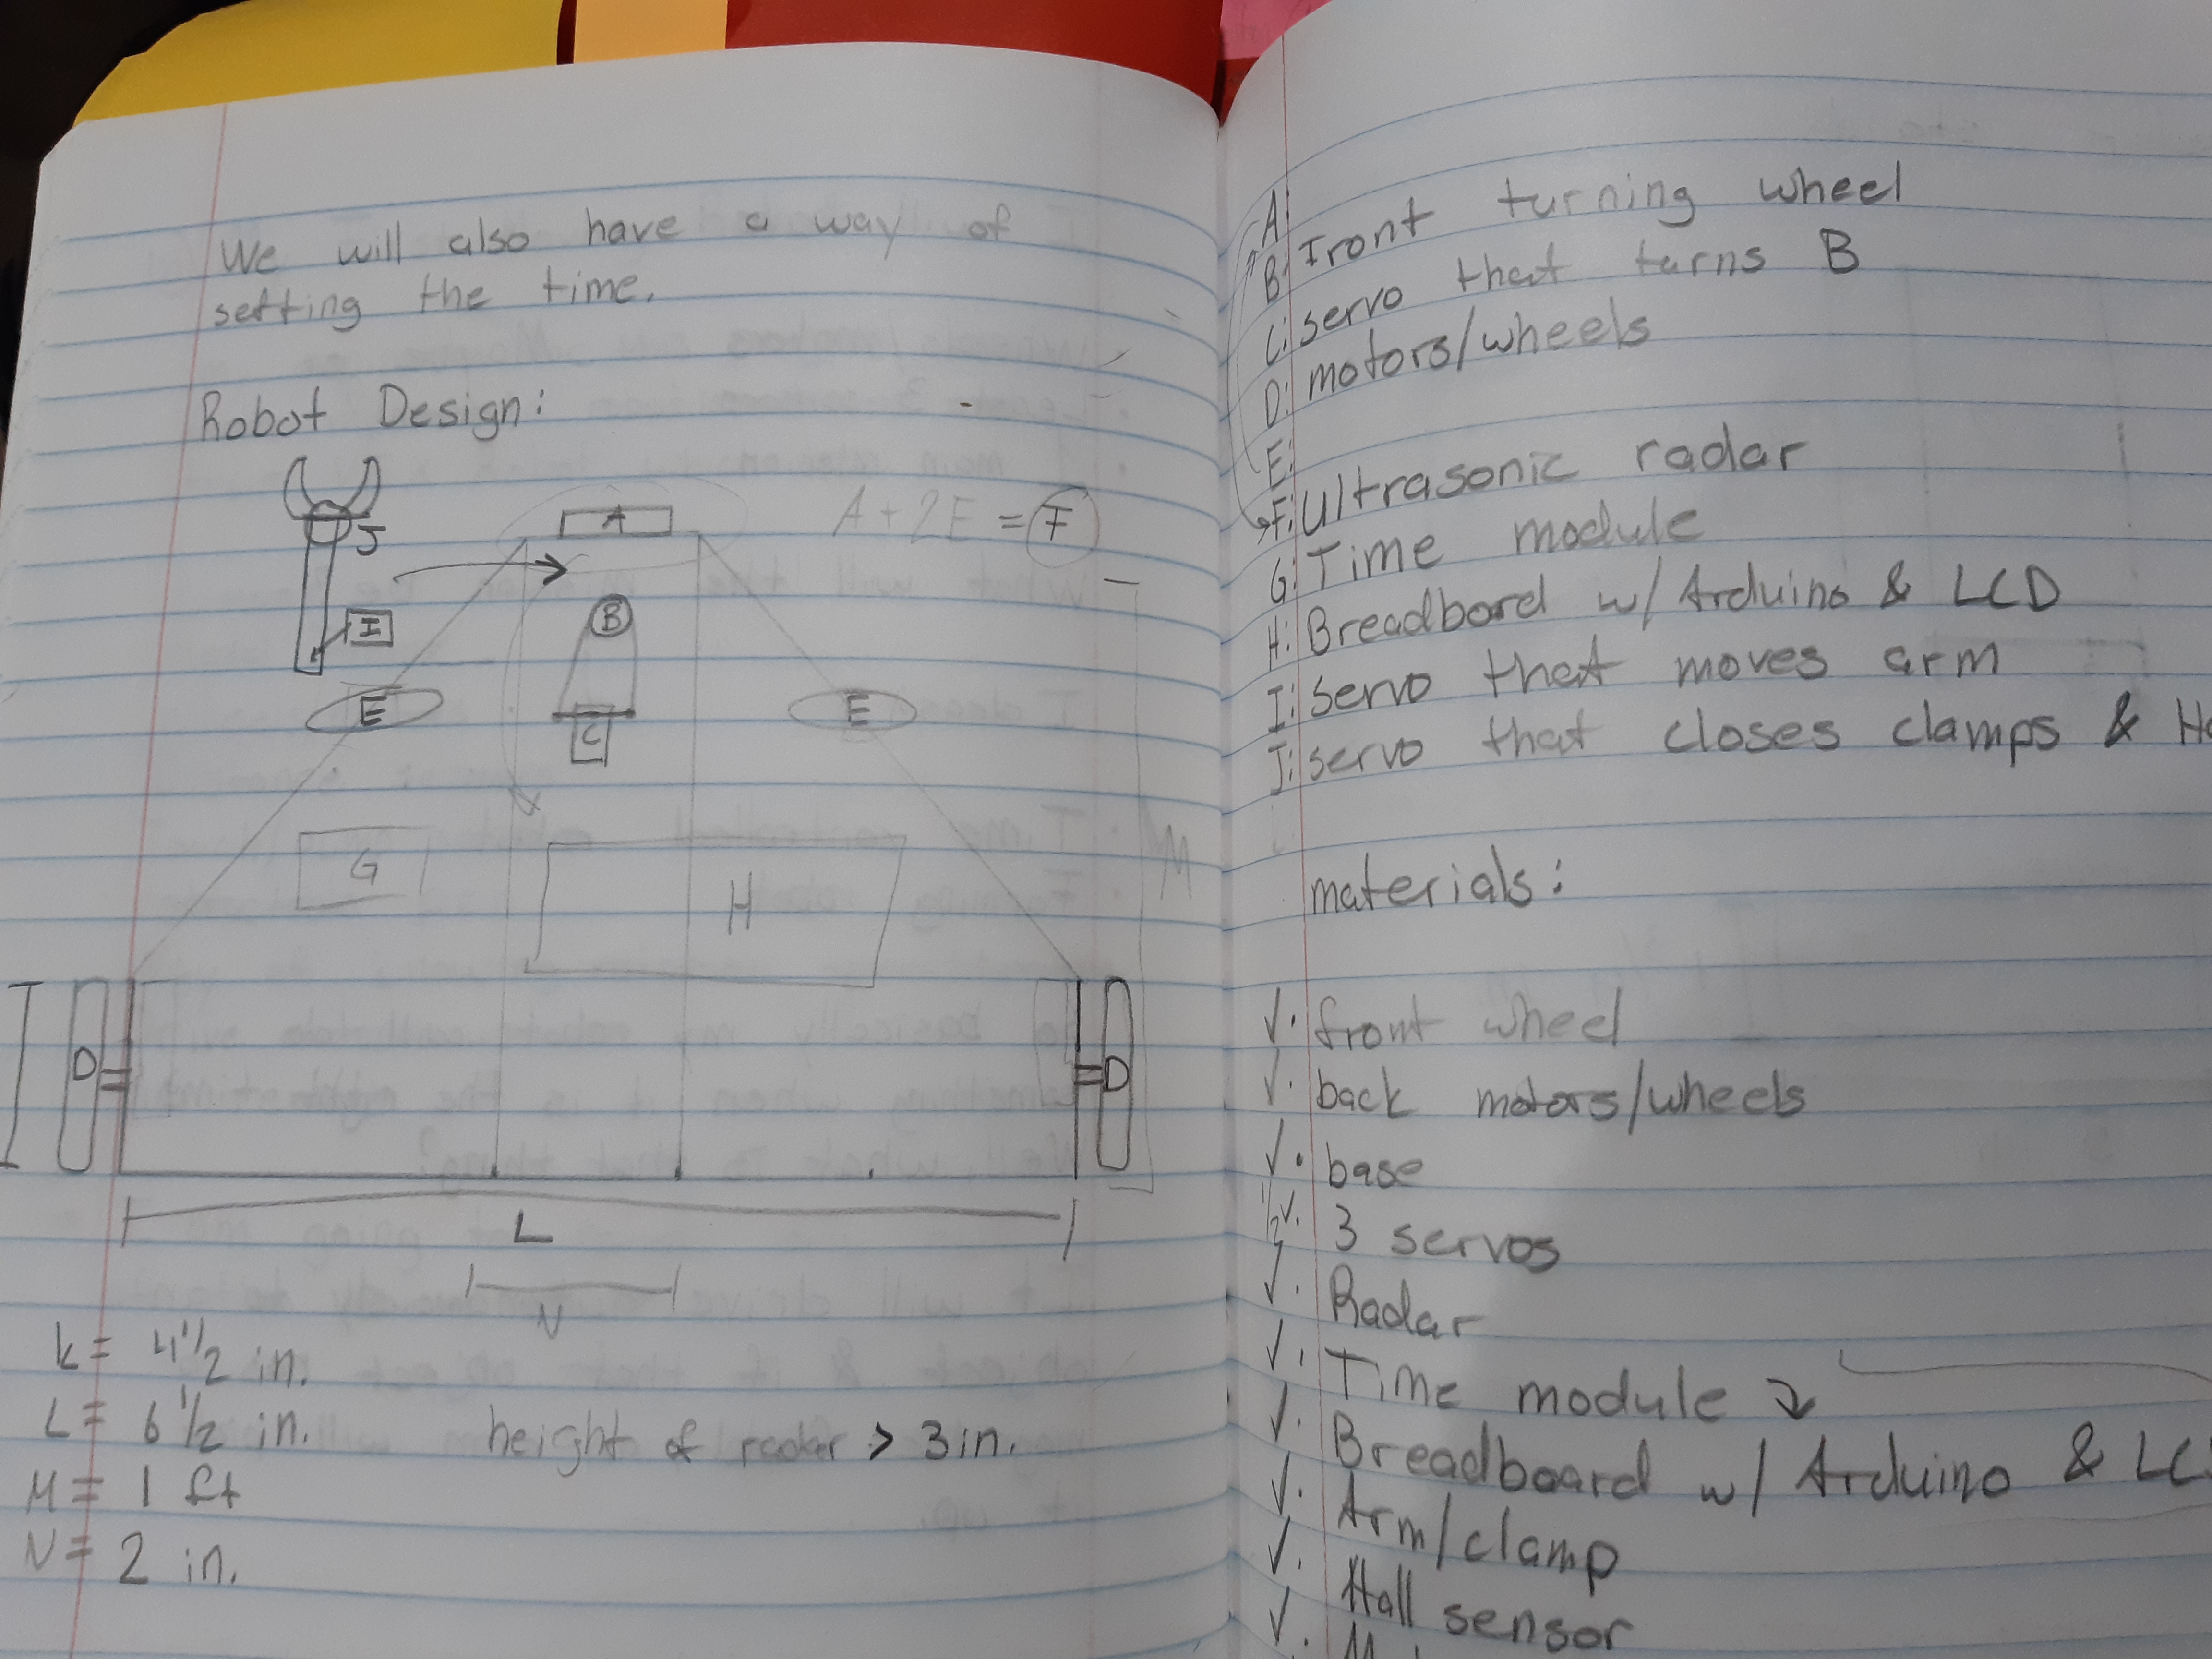 We will also have a way of
setting the time.
Robot Design:
A
A + 2E = F
J
I
B
C
E
E
G
H
M
D
D
L
N
K= 4 1/2 in.
L= 6 1/2 in. height of radar > 3 in.
M= 1 ft
N= 2 in.
A:
B: Front turning wheel
C: servo that turns B
D: motors/wheels
E:
F: Ultrasonic radar
G: Time module
H: Breadbord w/ Arduino & LCD
I: servo that moves arm
J: servo that closes clamps &
materials:
✓. front wheel
✓. back motors/wheels
✓. base
✓. 3 servos
✓. Radar
✓. Time module
✓. Breadboard w/ Arduino &
✓. Arm/clamp
✓. Hall sensor